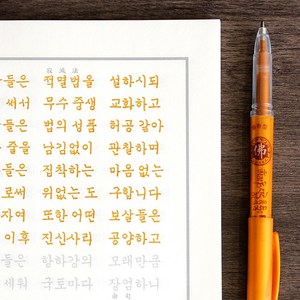 寂滅法
들은 적멸법을 설하시되
써서 무수중생 교화하고
들은 법의 성품 허공 같아
줄을 남김없이 관찰하며
들은 집착하는 마음 없는
로써 위없는 도 구합니다
자여 또한 어떤 보살들은
이후 진신사리 공양하고
들은 항하강의 모래만큼
세워 국토마다 장엄하니
佛